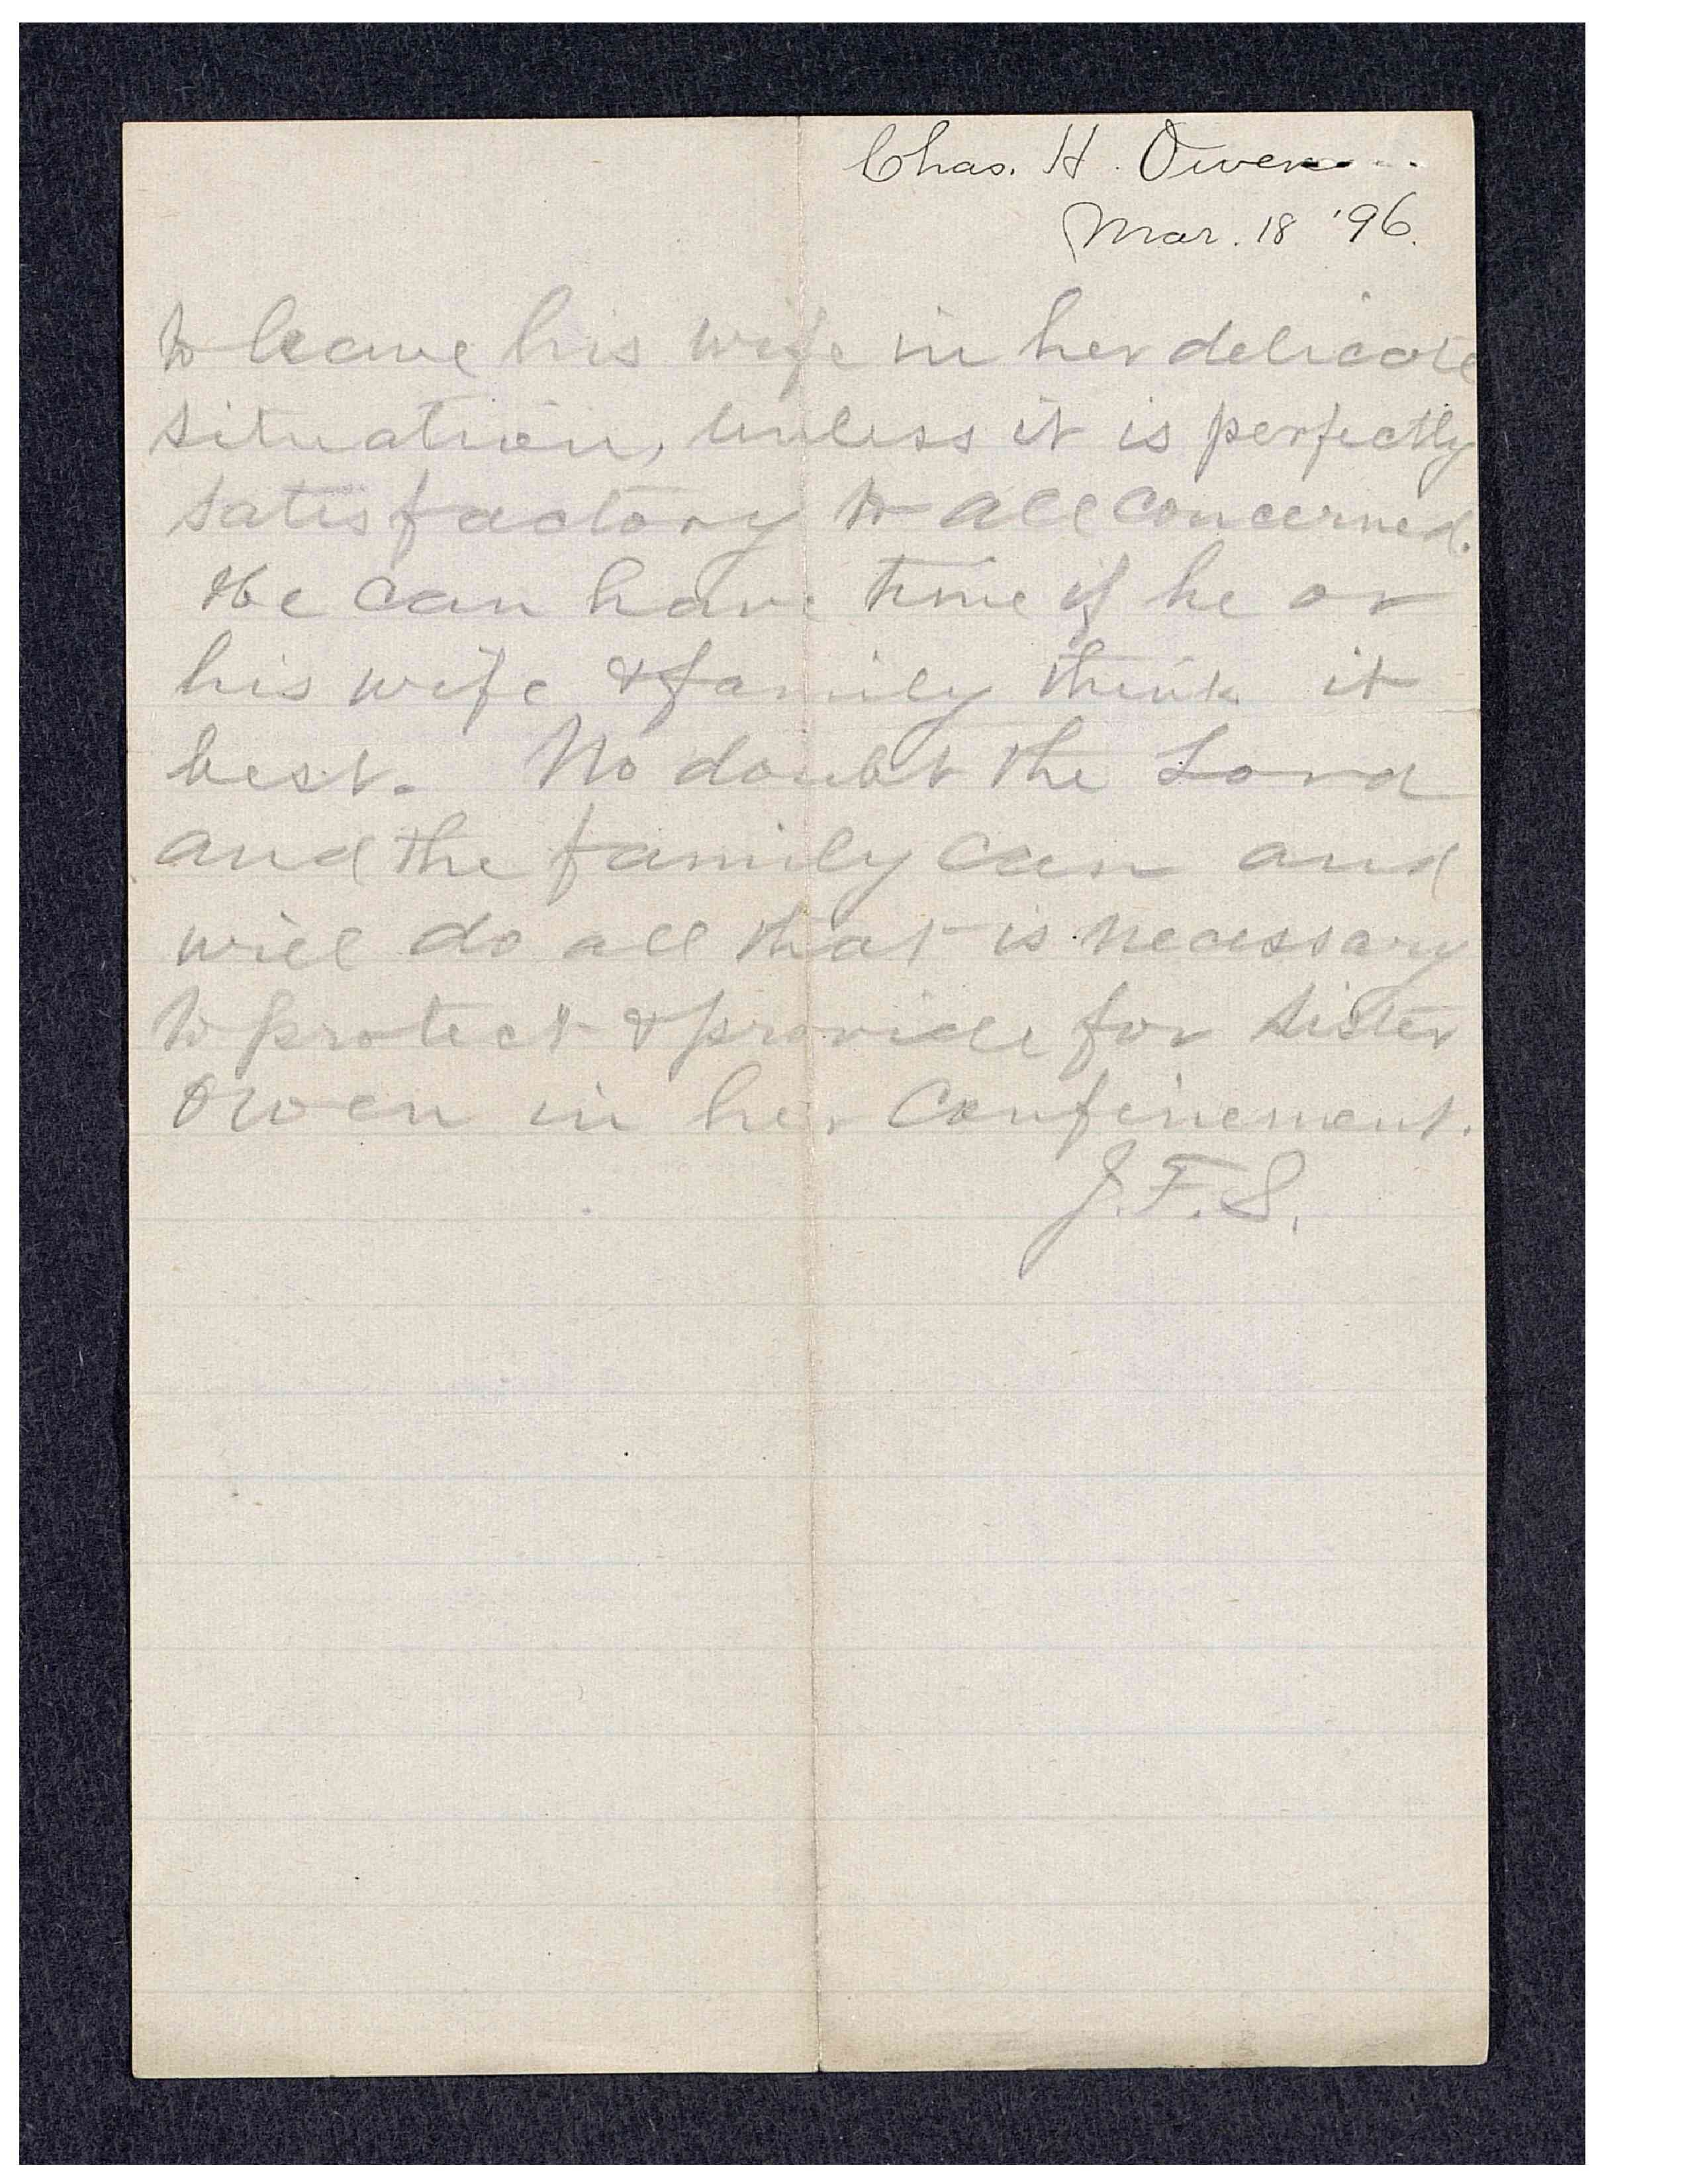 Chas. H. Owen
Mar. 18 '96.
to leave his wife in her delicate
situation, unless it is perfectly
satisfactory to all concerned.
He can have time if he or
his wife & family think it
best. No doubt the Lord
and the family can and
will do all that is necessary
to protect & provide for sister
Owen in her confinement.
J.F.S.